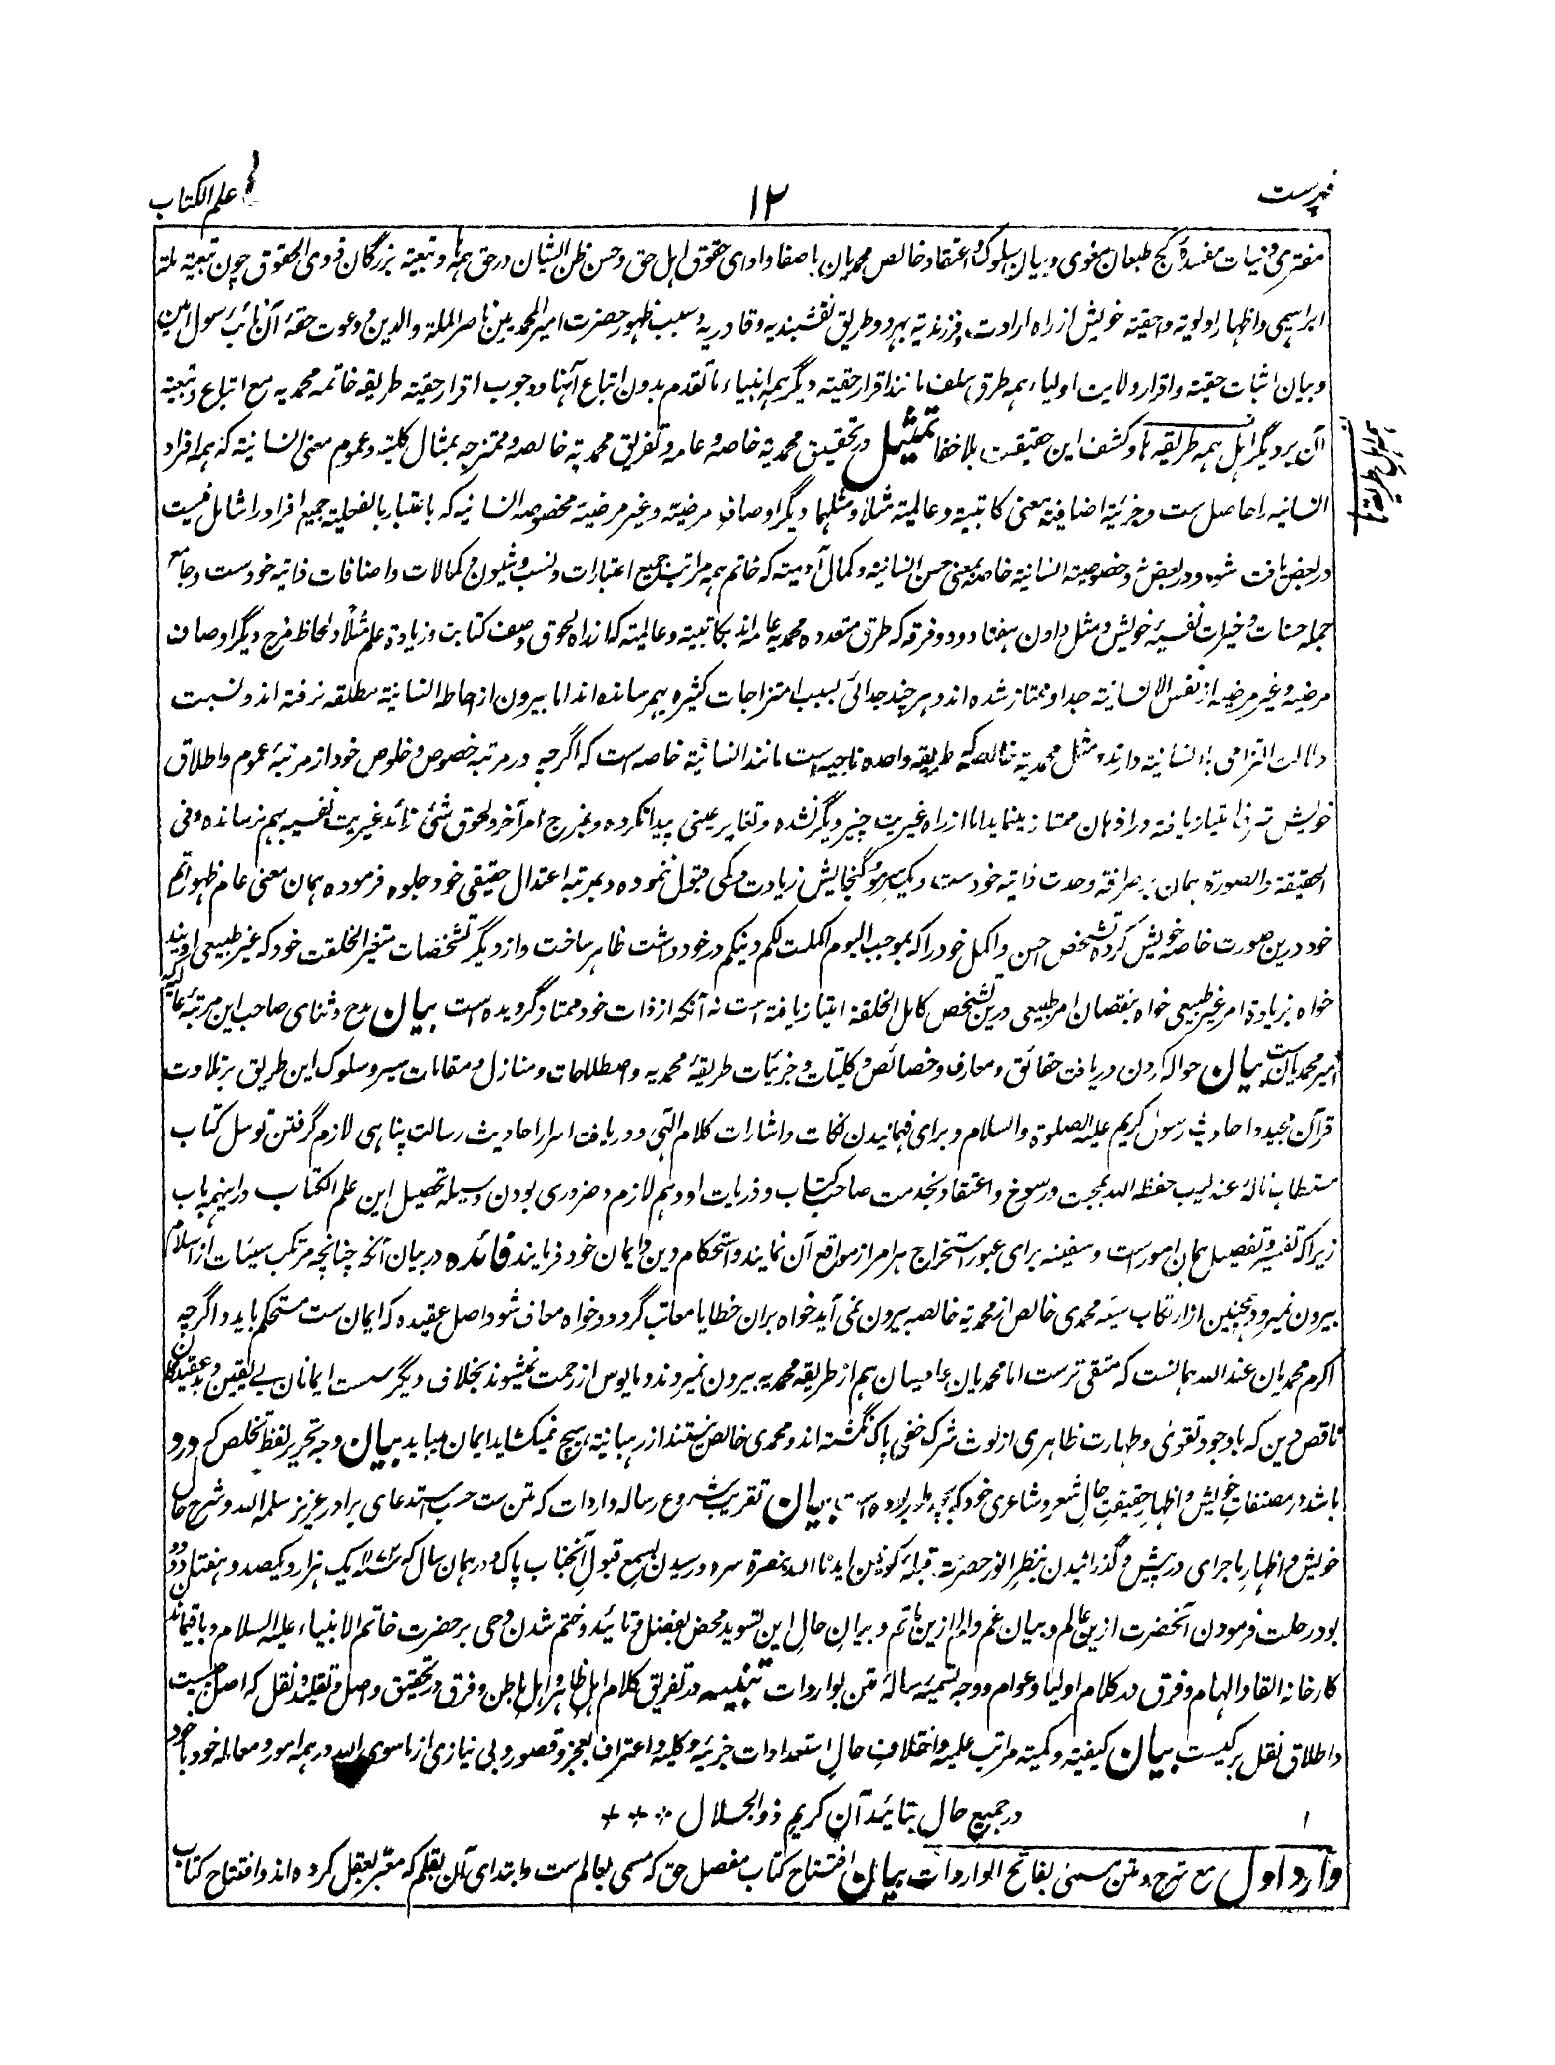 فهرست ۱۲ علم الکتاب
مفتری و نیات مفسدهٔ کج طبعان مغوی و بیان سلوک و اعتقاد خالص محمدیان باصفا و ادای حقوق اہل حق و حسن ظن ایشان در حق ہمہ و تبعیة بزرگان ذوی الحقوق چون تبعیة ملة
ابراہیمی و اظہار اولویة و احقیة خویش از راه ارادت و فرزندیة بہر دو طریق نقشبندیہ و قادریہ و سبب ظہور حضرت امیر المحمدیین ناصر الملة والدین و دعوت حقهٔ آن نائب رسول امین
و بیان اثبات حقیة و اقرار ولایت اولیاء ہمہ طرق سلف مانند اقرار حقیة دیگر ہمہ انبیاء ماتقدم بدون اتباع آنہا و وجوب اقرار حقیة طریقہ خاتمہ محمدیہ مع اتباع و تبعیة
آن بر دیگر اہل ہمہ طریقہ ہا و کشف این حقیقت بلاخفا تمثیل در تحقیق محمدیۃ خاصہ و عامہ و تفریق محمدیۃ خالصہ و ممتزجہ بمثال کلیة و عموم معنی انسانیة کہ ہمہ افراد
انسانیہ را حاصل ست و جزئیة اضافیة معنی کاتبیة و عالمیة مثلاً و مثلہما دیگر اوصاف مرضیہ و غیر مرضیہ مخصوصہ انسانیہ کہ باعتبار بالفعلیة جمیع افراد را شامل نیست
در بعض یافت شود و در بعض نہ و خصوصیة انسانیة خاصہ بمعنی حسن انسانیة و کمال آدمیة کہ خاتم ہمہ مراتب جمیع اعتبارات و نسب و شیون و کمالات و اضافات ذاتیہ خودست و جامع
جملہ حسنات و خیرات نفسیهٔ خویش و مثل دادن ہفتاد و دو فرقہ کہ طرق متعدده محمدیہ عامہ اند بکاتبیة و عالمیة کہ از راه لحوق وصف کتابت و زیادة علم مثلاً و لحاظ مزج دیگر اوصاف
مرضیہ و غیر مرضیہ از نفس الانسانیة جدا و ممتاز شده اند و ہر چند جدائی بسبب امتزاجات کثیره بہم رسانده اند اما بیرون از احاطہ انسانیة مطلقہ نرفتہ اند و نسبت
دلالت التزامی بانسانیة دارند و مثل محمدیة خالصہ کہ طریقہ واحده ناجیہ است مانند انسانیة خاصہ است کہ اگر چہ در مرتبہ خصوص و خلوص خود از مرتبۂ عموم و اطلاق
خویش امتیاز یافتہ در اذہان ممتاز مینماید اما از راه غیریت چیز دیگر نشده و تغایر عینی پیدا نکرده و بمزج امر آخر و لحوق شئ زائد غیریت نفسیہ بہم نرسانده و فی
الحقیقة والصورة ہمان بر صرافة وحدت ذاتیہ خودست و یک سر مو گنجایش زیادت و کمی قبول ننموده و بمرتبہ اعتدال حقیقی خود جلوه فرموده ہمان معنی عام ظہور اتم
خود درین صورت خاصہ خویش کرده تشخص احسن و اکمل خود را کہ بموجب الیوم اکملت لکم دینکم در خود داشت ظاہر ساخت و از دیگر تشخصات متغیر الخلقت خود کہ غیر طبیعی او یند
خواه بزیادة امر غیر طبیعی خواه بنقصان امر طبیعی درین تشخص کامل الخلقة امتیاز یافتہ است نہ آنکہ از ذات خود ممتاز گردیده است بیان مدح و ثنای صاحب این مرتبۂ عالیہ کہ
امیر محمدیان ست بیان حوالہ کردن دریافت حقائق و معارف و خصائص و کلیات و جزئیات طریقۂ محمدیہ و اصطلاحات و منازل و مقامات سیر و سلوک این طریق بر تلاوت
قرآن مجید و احادیث رسول کریم علیہ الصلوة والسلام و برای فہمانیدن نکات و اشارات کلام الہی و دریافت اسرار احادیث رسالت پناہی لازم گرفتن توسل کتاب
مستطاب نالۂ عندلیب حفظہ اللہ بمحبت و رسوخ و اعتقاد بخدمت صاحب کتاب و ذریات او و ہم لازم و ضروری بودن وسیلہ تحصیل این علم الکتاب درینہمہ باب
زیرا کہ تفسیر و تفصیل ہمان امورست و سفینہ برای عبور استخراج ہر امر از مواقع آن نمایند و استحکام دین و ایمان خود فرمایند فائده در بیان آنکہ چنانچہ مرتکب سیئات از اسلام
بیرون نمیرود ہمچنین از ارتکاب سیئہ محمدی خالص از محمدیۃ خالصہ بیرون نمی آید خواه بران خطایا معاتب گردد و خواه معاف شود اصل عقیده کہ ایمان ست مستحکم باید و اگر چہ
اکرم محمدیان عند اللہ ہمانست کہ متقی ترست اما محمدیان عاصیان ہم از طریقہ محمدیہ بیرون نمیروند و مایوس از رحمت نمیشوند بخلاف دیگر سست ایمانان بے یقین و بد عقیدگان
ناقص دین کہ باوجود تقوی و طہارت ظاہری از لوث شرک خفی پاک نگشتہ اند و محمدی خالص نیستند از رہبانیة ہیچ نمیکشاید ایمان میباید بیان وجہ تحریر لفظ تخلص کہ درد
باشد در مصنفات خویش و اظہار حقیقت حال شعر و شاعری خود کہ بچہ طور بوده است بیان تقریب شروع رسالہ واردات کہ متن ست حسب استدعای برادر عزیز سلمہ اللہ و شرح حال
خویش و اظہار ماجرای درپیش و گذرانیدن بنظر انور حضرت قبلۂ کونین ایدنا اللہ بنصرة سره و رسیدن بسمع قبول آنجناب پاک و در ہمان سال کہ ۱۱۷۲ یک ہزار و یکصد و ہفتاد و دو
بود رحلت فرمودن آنحضرت ازین عالم و بیان غم و الم ازین ماتم و بیان حال این تسوید محض بفضل و تائید و ختم شدن وحی بر حضرت خاتم الانبیاء علیہ السلام و باقیماندن
کارخانہ القا و الہام و فرق در کلام اولیا و عوام و وجہ تسمیۂ رسالۂ متن بواردات تنبیہ در تفریق کلام اہل ظاہر و اہل باطن و فرق در تحقیق و اصل و تقلید و نقل کہ اصل چیست
و اطلاق نقل بر کیست بیان کیفیة و کمیة مراتب علمیہ و اختلاف حال استعدادات جزئیہ و کلیہ و اعتراف بعجز و قصور و بی نیازی از ماسوی اللہ در ہمہ امور و معاملہ خود با خود
در جمیع حال بتائید آن کریم ذوالجلال
۱
وارد اول مع شرح و متن مسمی بفاتح الواردات بیان افتتاح کتاب مفصل حق کہ مسمی بعالم ست و ابتدای آن بقلم کہ معبر بعقل کرده اند و افتتاح کتاب